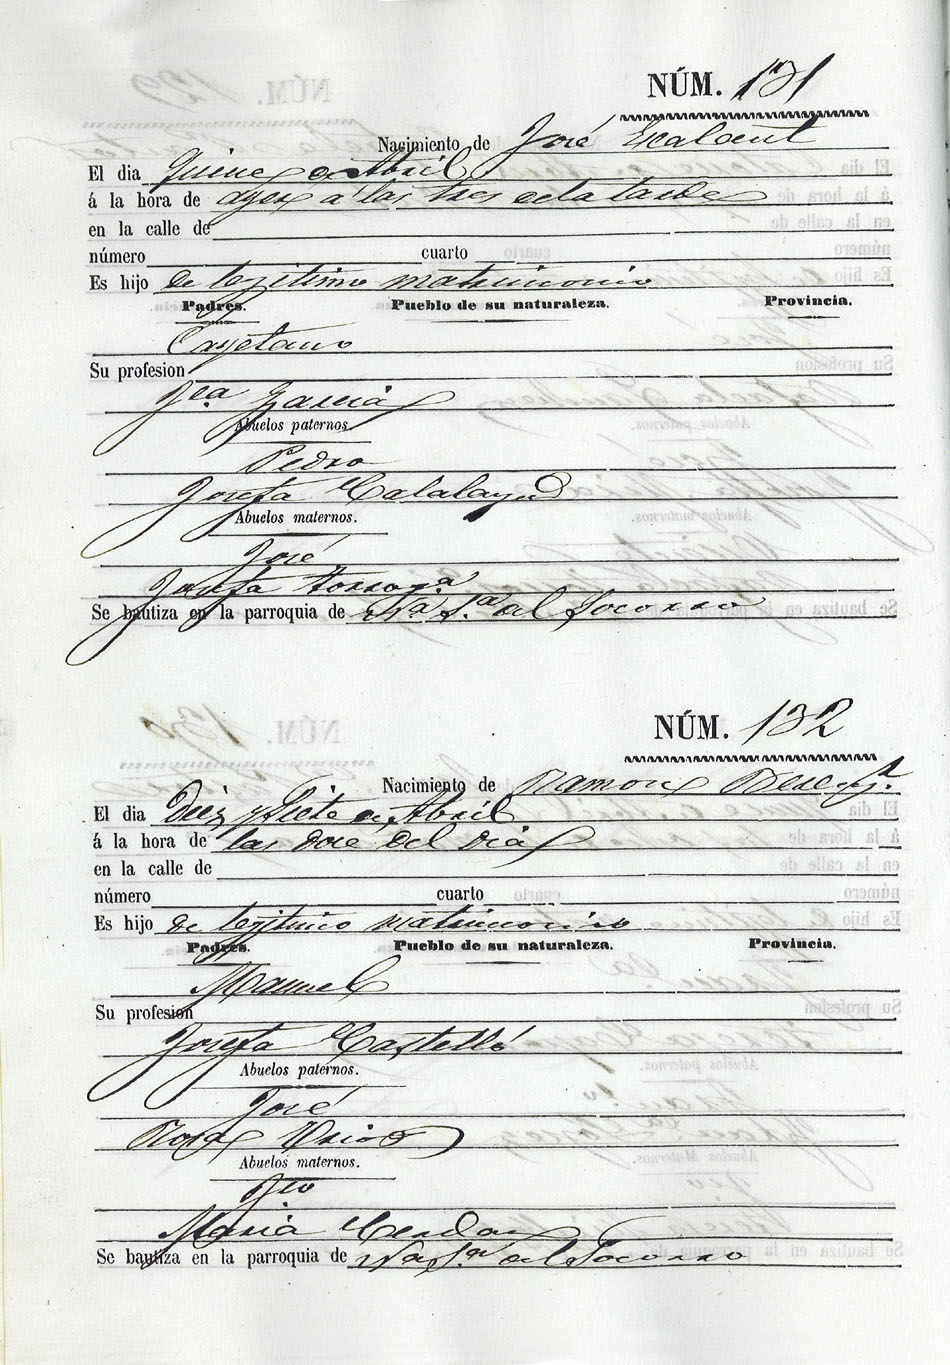 NÚM. 131
Nacimiento de José Escalant
El dia Quince de Abril
á la hora de ayer a las tres de la tarde
en la calle de
número cuarto
Es hijo de legitimo matrimonio
Padres. Pueblo de su naturaleza. Provincia.
Cayetano
Su profesion
Fca Garcia
Abuelos paternos.
Pedro
Josefa Calatayud
Abuelos maternos.
José
Josefa
Se bautiza en la parroquia de Na. Sa. del Socorro
NÚM. 132
Nacimiento de Ramon
El dia Diez y Siete de Abril
á la hora de las doce del dia
en la calle de
número cuarto
Es hijo de legitimo matrimonio
Padres. Pueblo de su naturaleza. Provincia.
Manuel
Su profesion
Josefa Castelló
Abuelos paternos.
José
Rosa
Abuelos maternos.
Fco
Maria Cerdan
Se bautiza en la parroquia de Na Sa del Socorro